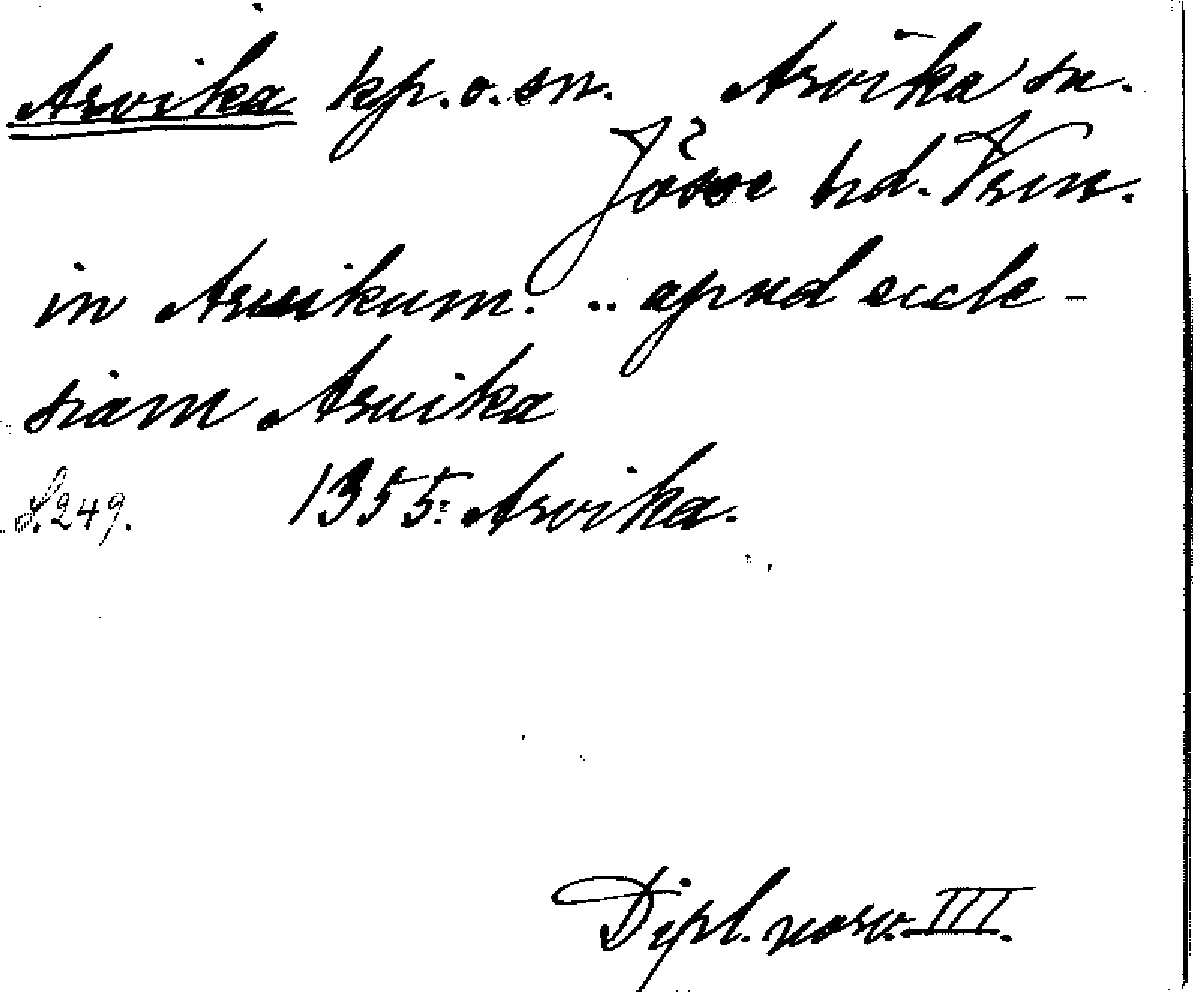 Arvika kp. o. sn. Arvika sn.
Jösse hd. Vrm.
in Arwikum. .. apud eccle-
siam Aruika
S. 249. 1355: Arvika.
Dipl. norv. III.